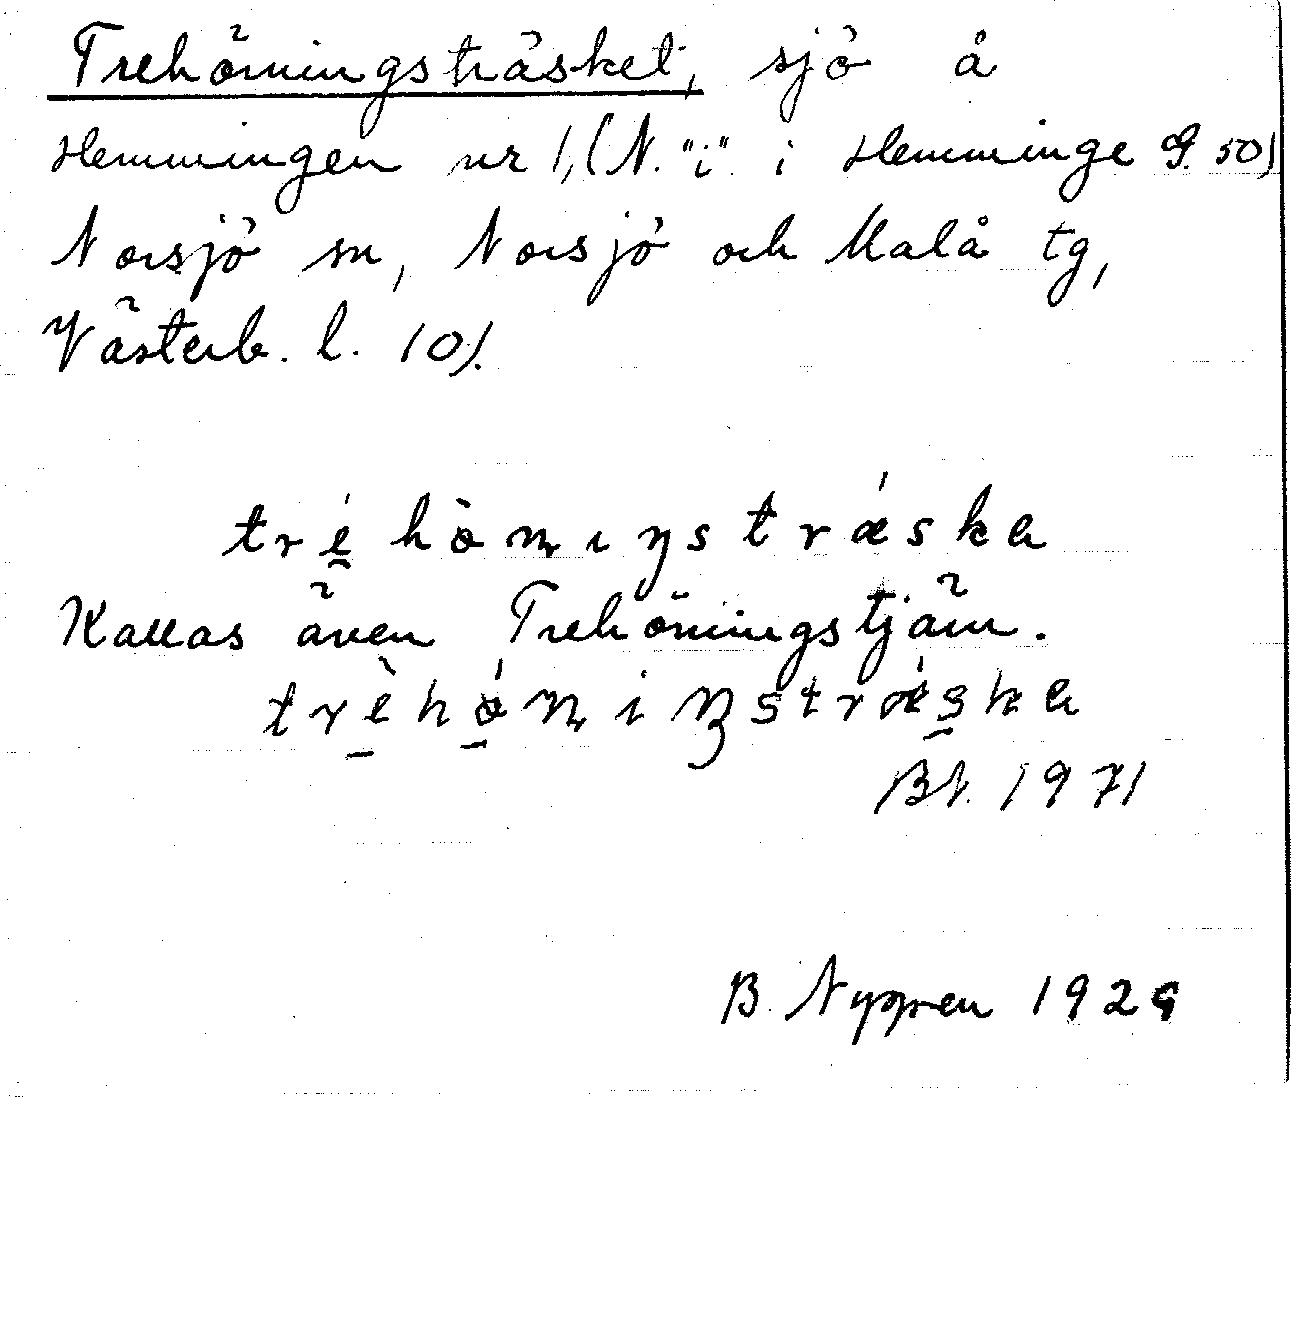 Trehörningsträsket, sjö å
Hemmingen nr 1, (N. "i" i Hemminge G. 50)
Norsjö sn, Norsjö och Malå tg,
Västerb. l. 10).
tré hòṇıŋstrǽska
Kallas även Trehörningstjärn.
trèhǿṇiŋstrǽska
Bt. 1971
B. Nygren 1929